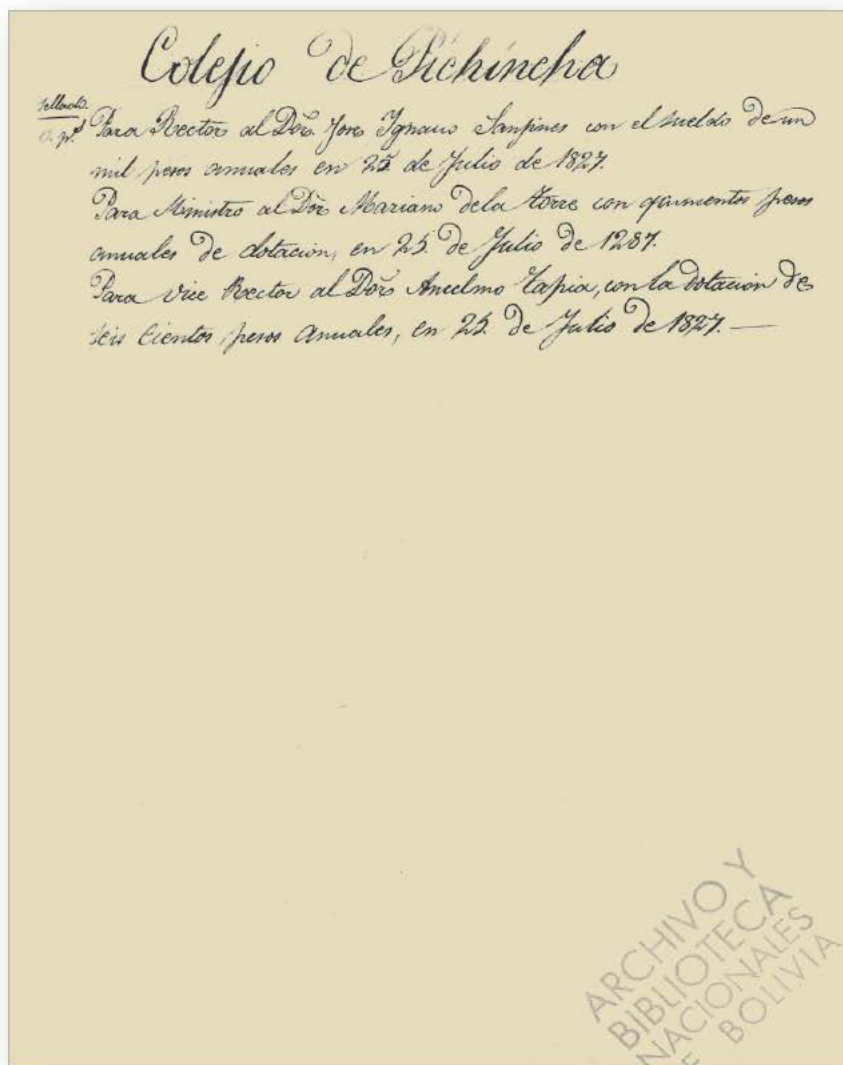 Colejio de Pichincha
sellado.
Para Rector al Dor. Jose Ignacio Sanjines con el sueldo de un
mil pesos annuales en 25 de Julio de 1827.
Para Ministro al Dor Mariano dela torre con quinientos pesos
annuales de dotacion, en 25. de Julio de 1287.
Para Vice Rector al Dor Anselmo Tapia, con la dotacion de
seis Cientos pesos Annuales, en 25. de Julio de 1827. —
ARCHIVO Y
BIBLIOTECA
NACIONALES
DE BOLIVIA